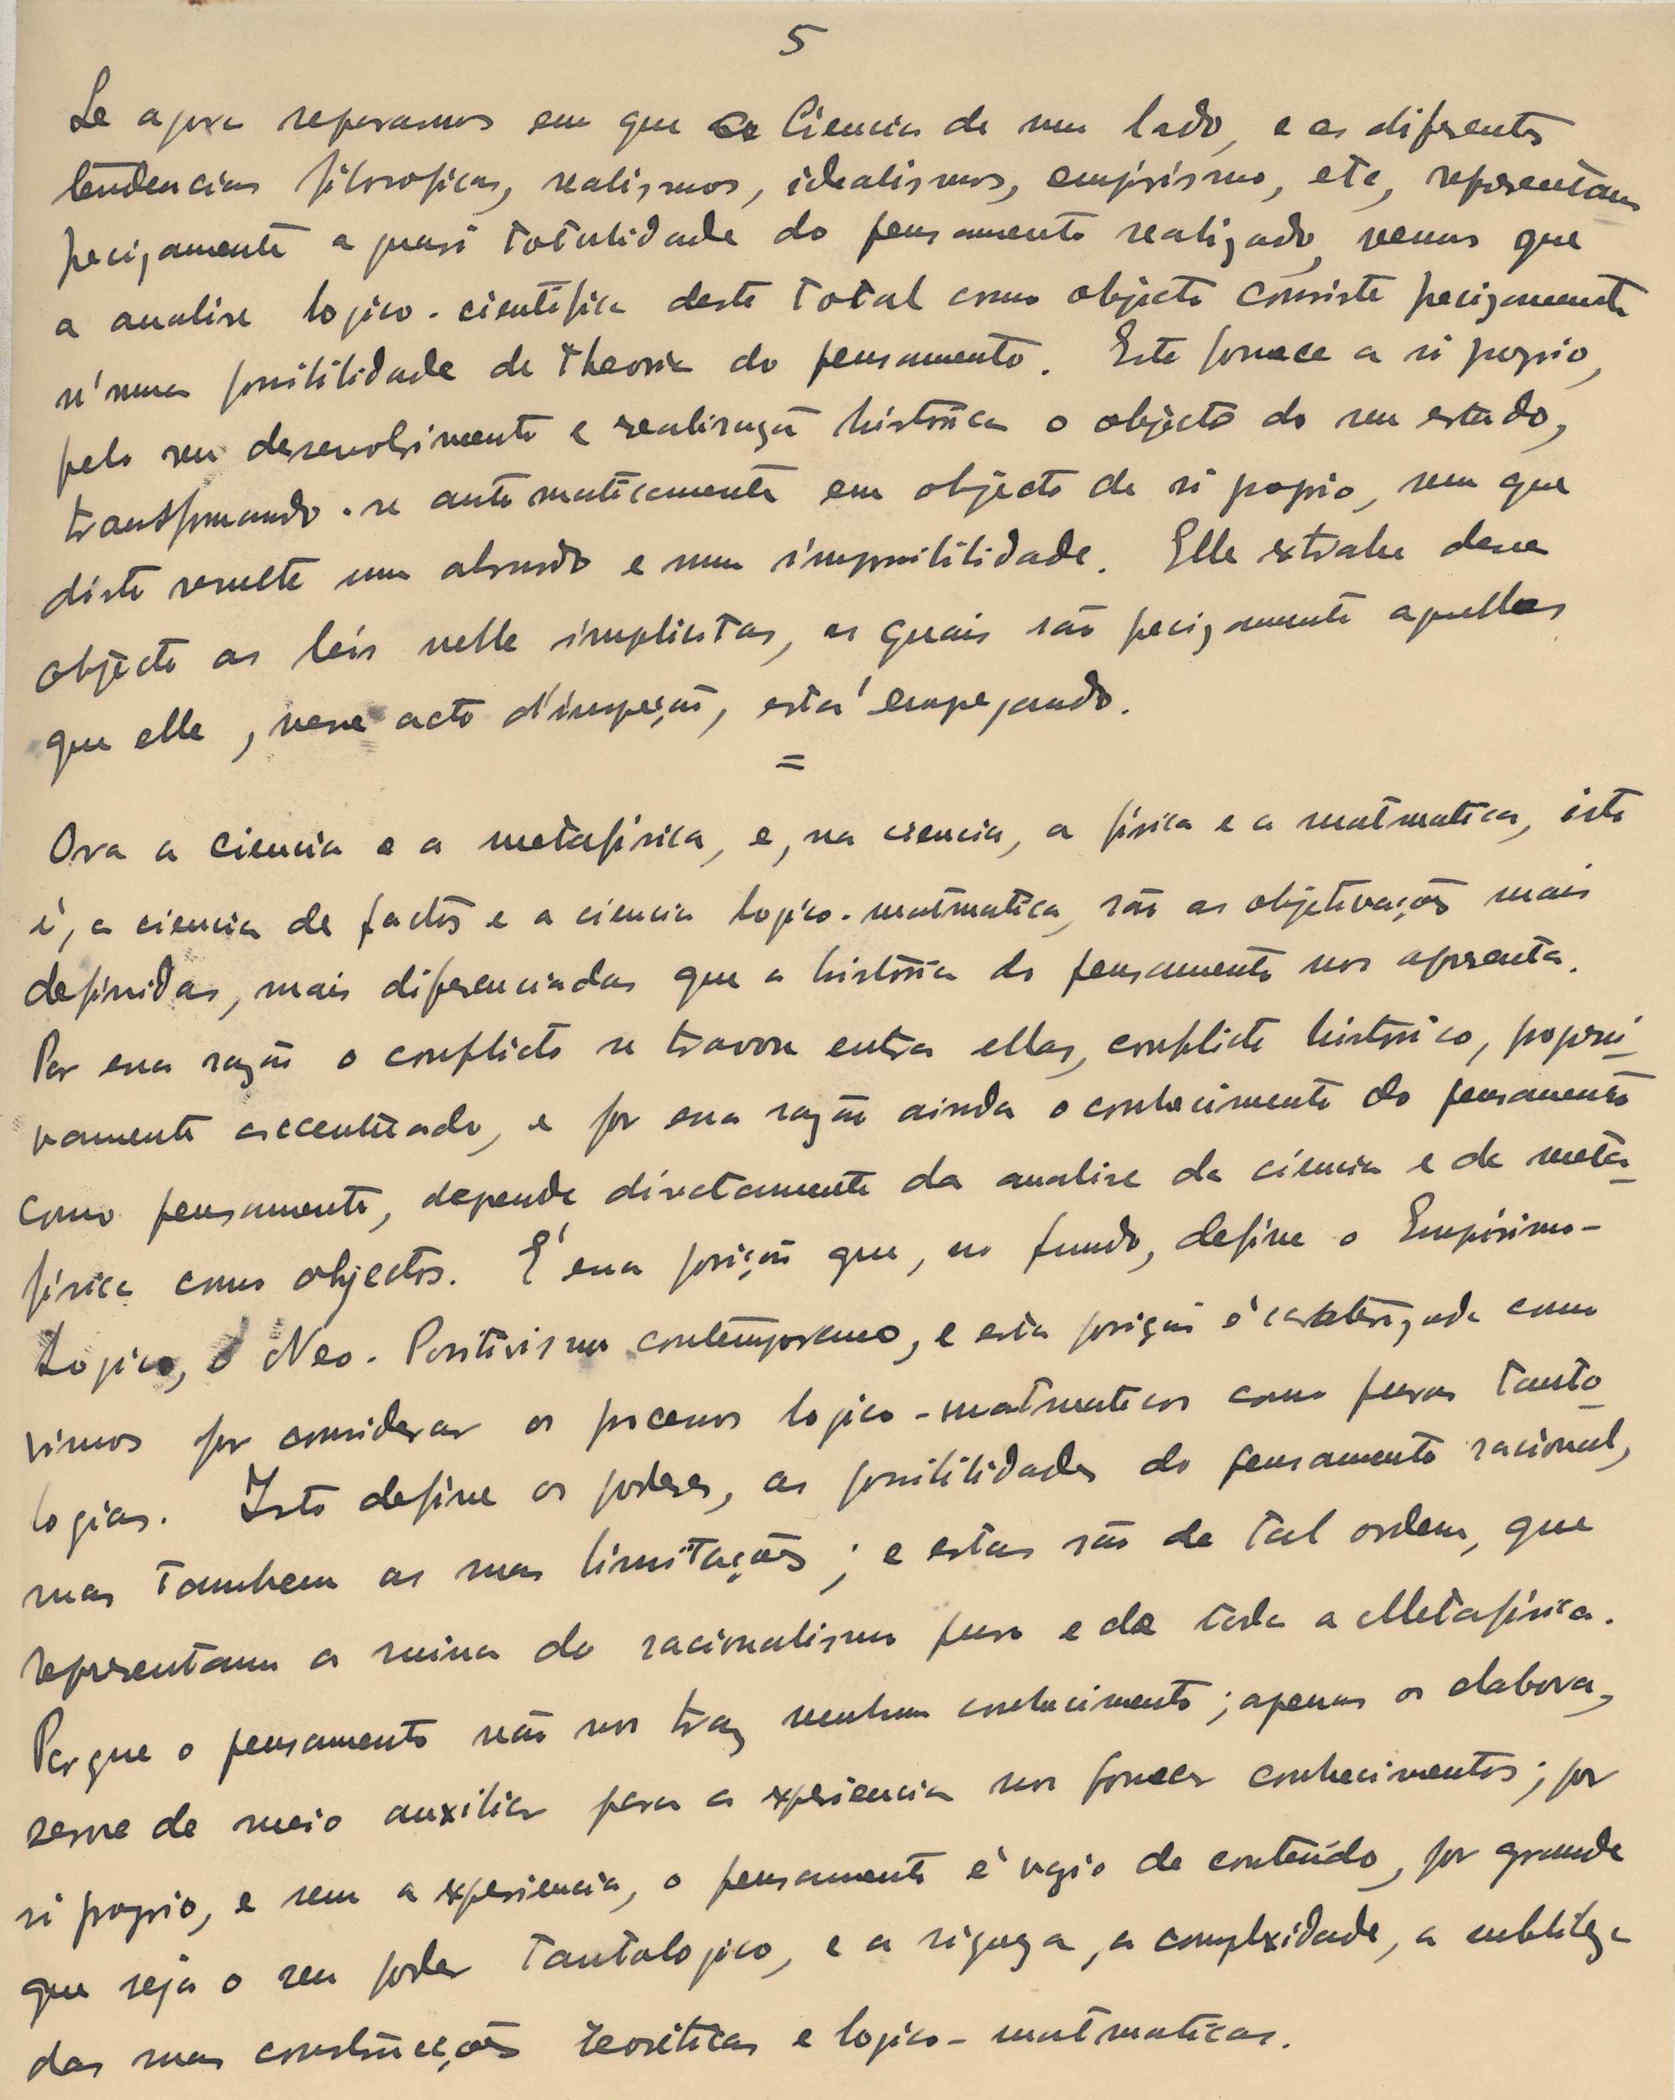 5
Se agora reparamos em que a Ciencia de um lado, e as diferentes
tendencias filosoficas, realismos, idealismos, empirismo, etc, representam
precizamente a quasi totalidade do pensamento realizado, vemos que
a analise logico-cientifica deste total como objecto consiste precizamente
n'uma possibilidade de theoria do pensamento. Este fornece a si proprio,
pelo seu desenvolvimento e realisação histórica o objecto do seu estudo,
transformando-se automaticamente em objecto de si proprio, sem que
disto resulte um absurdo e uma impossibilidade. Elle extrahe desse
objecto as leis nelle implicitas, as quais são precizamente aquellas
que elle, nesse acto d'inspeção, está empregando.
=
Ora a ciencia e a metafísica, e, na ciencia, a física e a matematica, isto
é, a ciencia de factos e a ciencia logico-matematica, são as objetivações mais
definidas, mais diferenciadas que a história do pensamento nos apresenta.
Por essa razão o conflicto se travou entre ellas, conflicto histórico, progressi-
vamente accentuado, e por essa razão ainda o conhecimento do pensamento
como pensamento, depende directamente da analise da ciencia e da meta-
física como objectos. É essa posição que, no fundo, define o Empirismo-
Logico, o Neo-Positivismo contemporaneo, e esta posição é caracterizada como
vimos por considerar os processos logico-matematicos como puras tauto-
logias. Isto define os poderes, as possibilidades do pensamento racional,
mas tambem as suas limitações; e estas são de tal ordem, que
representam a ruina do racionalismo puro e de toda a Metafísica.
Porque o pensamento não nos traz nenhum conhecimento; apenas os elabora,
serve de meio auxiliar para a experiencia nos fornecer conhecimentos; por
si proprio, e sem a experiencia, o pensamento é vazio de conteúdo, por grande
que seja o seu poder tautologico, e a riqueza, a complexidade, a subtileza
das suas construcções teoréticas e logico-matematicas.